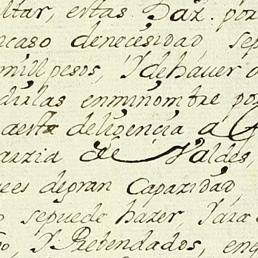 ltar, estas Daz. por
ncaso denecesidad sep
mill pesos, Y dehaver
dulas enminombre po
aesta deligencia á
arzia de Valdes,
ees degran Capazidad
sepuede hazer
Y Prebendados, en